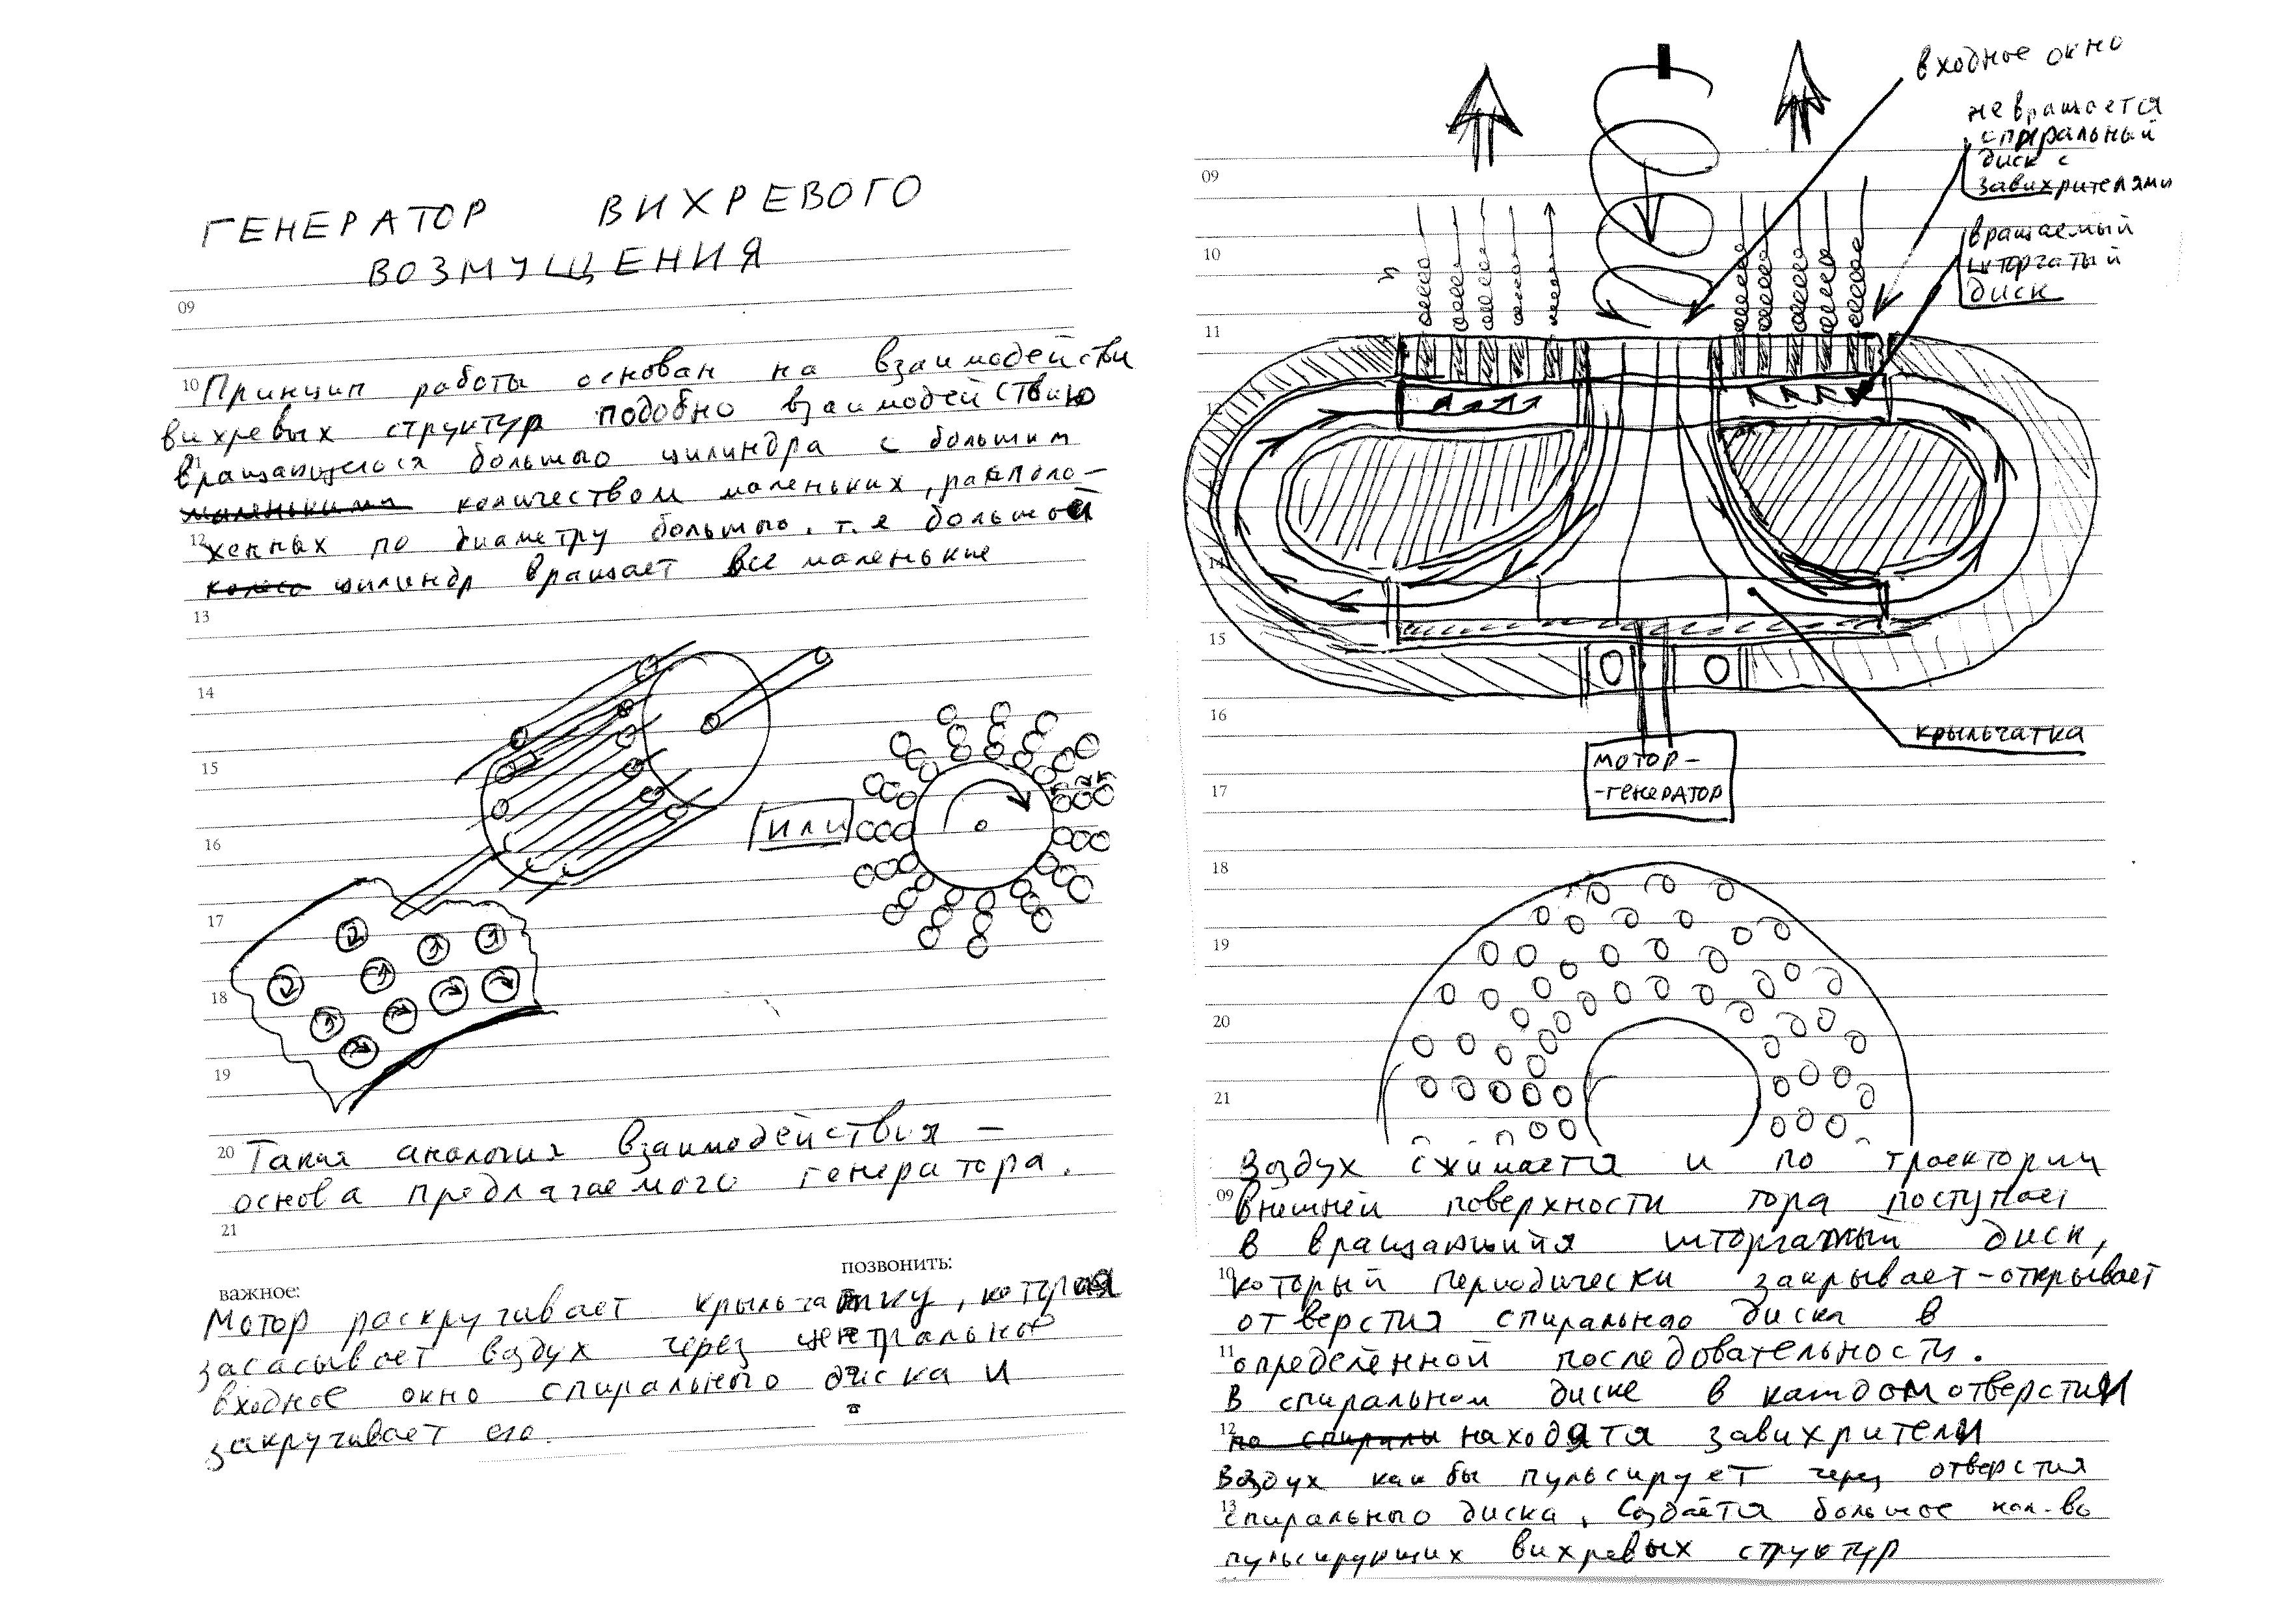 ГЕНЕРАТОР ВИХРЕВОГО
ВОЗМУЩЕНИЯ
09
10 Принцип работы основан на взаимодействи
вихревых структур подобно взаимодействию
вращающегося большого цилиндра с большим
маленькими количеством маленьких, располо-
12 женных по диаметру большого. т.е большой
колесо цилиндр вращает все маленькие
13
14
15
16
или
17
18
19
20 Такая аналогия взаимодействия –
основа предлагаемого генератора.
21
позвонить:
важное:
Мотор раскручивает крыльчатку, которая
засасывает воздух через центральное
входное окно спирального диска и
закручивает его.
входное окно
не вращается
спиральный
диск с
завихрителями
вращаемый
шторчатый
диск
09
10
11
12
14
15
16
крыльчатка
мотор-
-генератор
17
18
19
20
21
Воздух сжимается и по траектории
09 внешней поверхности тора поступает
в вращающийся шторчатый диск,
10 который периодически закрывает-открывает
отверстия спирально диска в
11 определённой последовательности.
В спиральном диске в каждом отверстии
12 по спирали находятя завихрители
Воздух как бы пульсирует через отверстия
13 спирального диска. Создаётя большое кол-во
пульсирующих вихревых структур